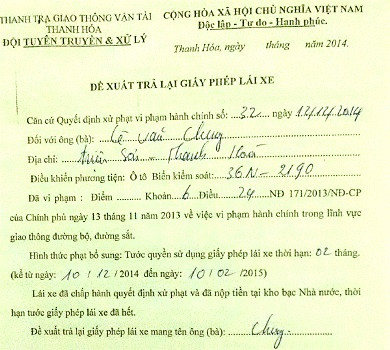 THANH TRA GIAO THÔNG VẬN TẢI
THANH HÓA
ĐỘI TUYÊN TRUYỀN & XỬ LÝ
CỘNG HÒA XÃ HỘI CHỦ NGHĨA VIỆT NAM
Độc lập - Tự do - Hạnh phúc.
Thanh Hóa, ngày tháng năm 2014.
ĐỀ XUẤT TRẢ LẠI GIẤY PHÉP LÁI XE
Căn cứ Quyết định xử phạt vi phạm hành chính số: 32 ngày 12/12/2014
Đối với ông (bà): Lê Văn Chung
Địa chỉ: Thanh Hoá
Điều khiển phương tiện: Ô tô Biển kiểm soát: 36N - 2190
Đã vi phạm : Điểm ......... Khoản 6 Điều 24 NĐ 171/2013/NĐ-CP
của Chính phủ ngày 13 tháng 11 năm 2013 về việc vi phạm hành chính trong lĩnh vực
giao thông đường bộ, đường sắt.
Hình thức phạt bổ sung: Tước quyền sử dụng giấy phép lái xe thời hạn: 02 tháng.
(kể từ ngày 10 / 12 / 2014 đến ngày: 10 / 02 /2015)
Lái xe đã chấp hành quyết định xử phạt và đã nộp tiền tại kho bạc Nhà nước, thời
hạn tước giấy phép lái xe đã hết.
Đề xuất trả lại giấy phép lái xe mang tên ông (bà): Chung.